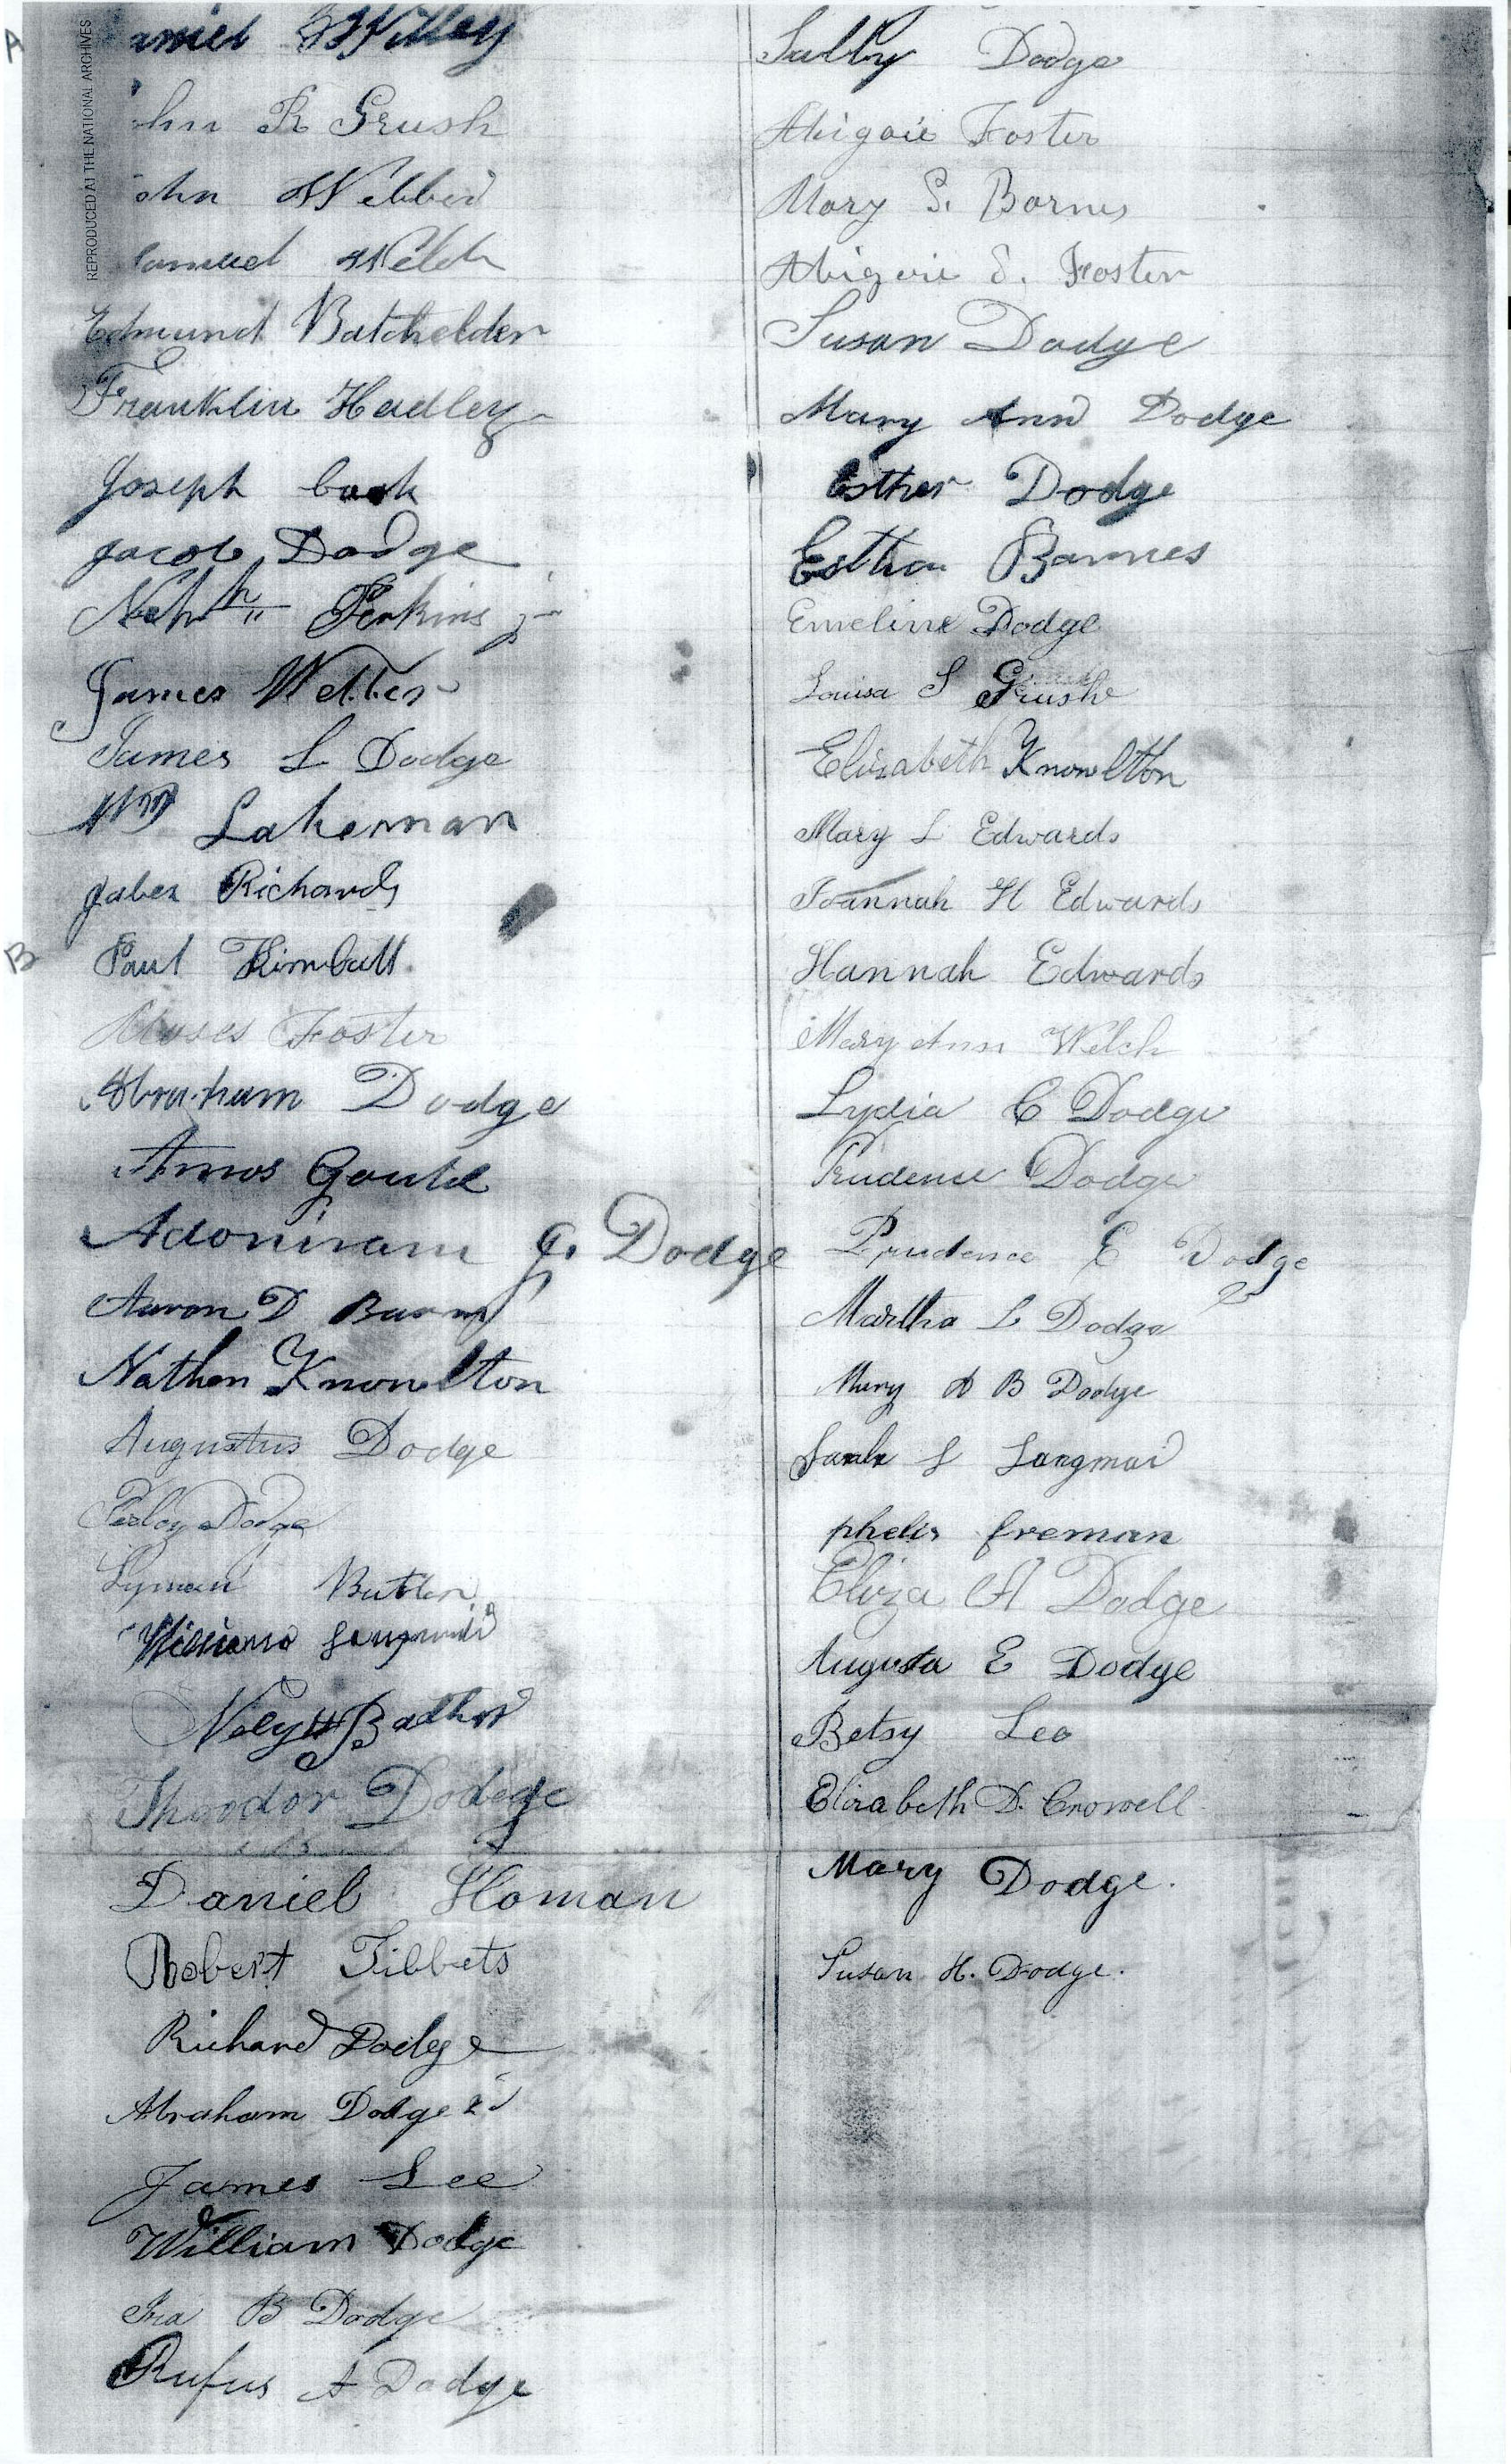 A
REPRODUCED AT THE NATIONAL ARCHIVES
B
amel Willey
hn R Grush
ohn Webber
amuel Welch
Edmund Batchelder
Franklin Hadley
Joseph Cook
Jacob Dodge
Nehh Perkins jr
James Webber
James L Dodge
Wm Lakeman
Jabez Richards
Paul Kimball
Moses Foster
Abraham Dodge
Amos Gould
Adoniram J. Dodge
Aaron D
Nathan Knowlton
Augustus Dodge
Perley Dodge
Lyman Butler
William Langmaid
Theodor Dodge
Daniel Homan
Robert Tibbets
Richard Dodge
Abraham Dodge 2d
James Lee
William Dodge
Ira B Dodge
Rufus A Dodge
Sally Dodge
Abigail Foster
Mary S. Barnes
Abigail S. Foster
Susan Dodge
Mary Ann Dodge
Esther Dodge
Esther Barnes
Emeline Dodge
Louisa S Grush
Elizabeth Knowlton
Mary L Edwards
Joannah H Edwards
Hannah Edwards
Mary Ann Welch
Lydia C Dodge
Prudence Dodge
Prudence E Dodge
Martha L Dodge
Mary A B Dodge
Sarah S Langmaid
phelis freman
Eliza A Dodge
Augusta E Dodge
Betsy Lee
Elizabeth D. Crowell
Mary Dodge.
Susan H. Dodge.